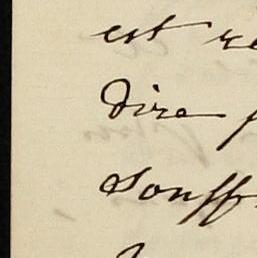 est re
dire f
souff